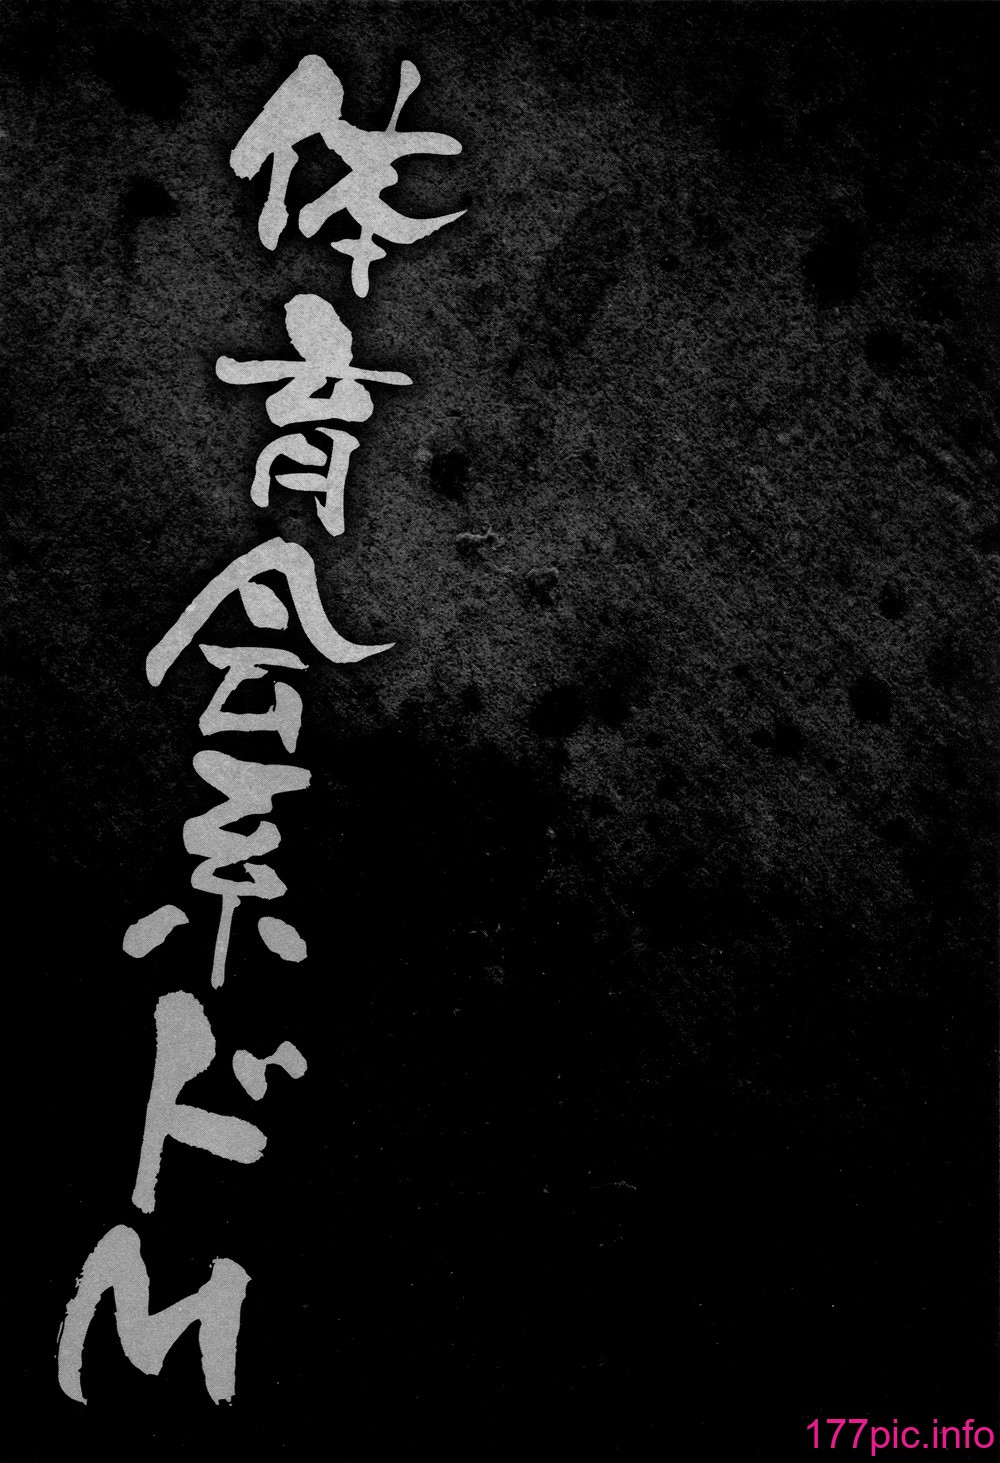 体育会系ドM
177pic.info